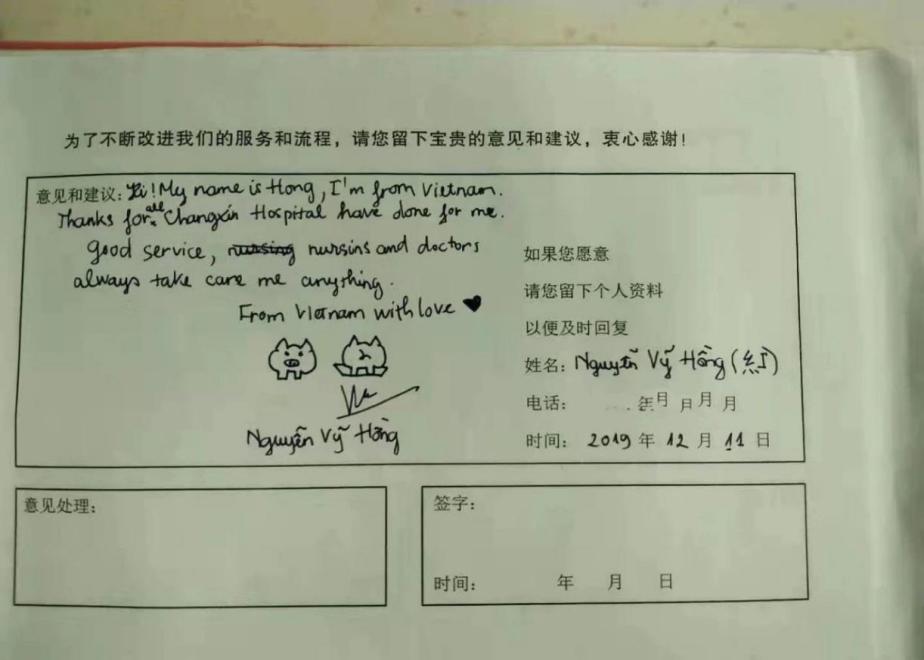 为了不断改进我们的服务和流程，请您留下宝贵的意见和建议，衷心感谢！
意见和建议：Hi! My name is Hong, I'm from Vietnam.
Thanks for all Changxin Hospital have done for me.
good service, nursins and doctors
always take care me anything.
From Vietnam with love ♥
Nguyễn Vỹ Hồng
如果您愿意
请您留下个人资料
以便及时回复
姓名：Nguyễn Vỹ Hồng (紅)
电话：
时间：2019 年 12 月 11 日
意见处理：
签字：
时间： 年 月 日